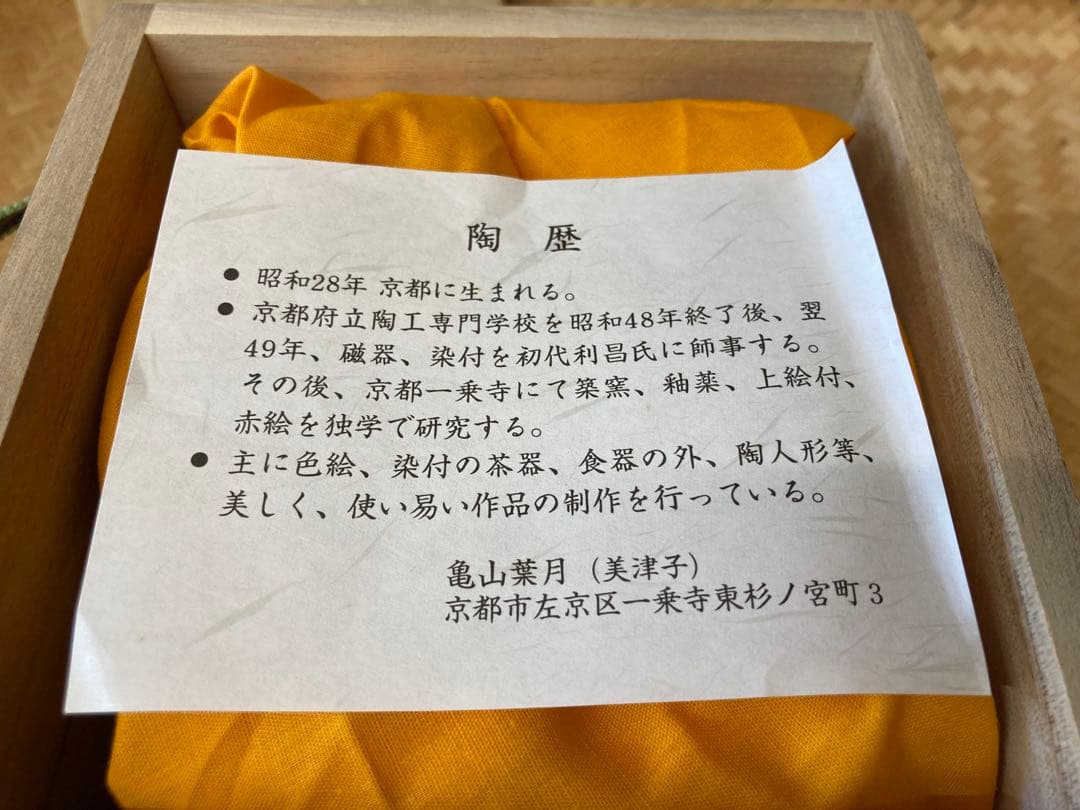 陶 歴
● 昭和28年 京都に生まれる。
● 京都府立陶工専門学校を昭和48年終了後、翌
49年、磁器、染付を初代利昌氏に師事する。
その後、京都一乗寺にて築窯、釉薬、上絵付、
赤絵を独学で研究する。
● 主に色絵、染付の茶器、食器の外、陶人形等、
美しく、使い易い作品の制作を行っている。
亀山葉月（美津子）
京都市左京区一乗寺東杉ノ宮町3